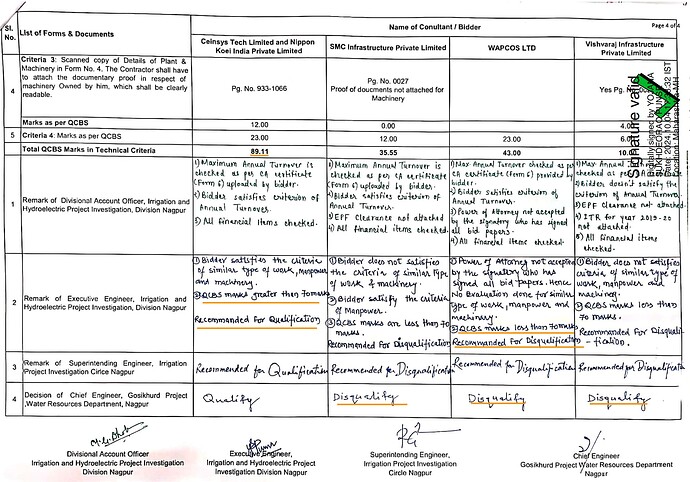 Page 4 of 4
Sl. No.
List of Forms & Documents
Name of Conultant / Bidder
Ceinsys Tech Limited and Nippon Koei India Private Limited
SMC Infrastructure Private Limited
WAPCOS LTD
Vishvaraj Infrastructure Private Limited
4
Criteria 3: Scanned copy of Details of Plant &
Machinery in Form No. 4. The Contractor shall have
to attach the documentary proof in respect of
machinery Owned by him, which shall be clearly
readable.
Pg. No. 933-1066
Pg. No. 0027
Proof of doucments not attached for
Machinery
Yes Pg. No.
Marks as per QCBS
12.00
0.00
4.00
5
Criteria 4: Marks as per QCBS
23.00
12.00
23.00
Total QCBS Marks in Technical Criteria
89.11
35.55
43.00
Signature valid
1
Remark of Divisional Account Officer, Irrigation and
Hydroelectric Project Investigation, Division Nagpur
1) Maximum Annual Turnover is
checked as per CA certificate
(Form 6) uploaded by bidder.
2) Bidder satisfies criterion of
Annual Turnover.
3) All financial items checked.
1) Maximum Annual Turnover is
checked as per CA certificate
(Form 6) uploaded by bidder.
2) Bidder satisfies criterion of
Annual Turnover.
3) EPF Clearance not attached
4) All financial items checked.
1) Max Annual Turnover checked as per
CA certificate (Form 6) provided by
bidder.
2) Bidder satisfies criterion of
Annual Turnover.
3) Power of Attorney not accepted
by the signatory who has signed
all bid papers.
4) All financial items checked.
2) Bidder doesn't satisfy the
criterion of Annual Turnover.
3) EPF clearance not attached
4) ITR for year 2019-20
not attached
5) All financial items
checked.
2
Remark of Executive Engineer, Irrigation and
Hydroelectric Project Investigation, Division Nagpur
① Bidder satisfies the criteria
of similar type of work, manpower
and machinery.
② QCBS marks greater than 70 marks
Recommanded For Qualification
① Bidder does not satisfies
the criteria of similar type
of work & machinery.
② Bidder satisfy the criteria
of Manpower.
③ QCBS marks are less than 70
marks.
Recommanded For Disqualification
① Power of Attorney not accepted
by the signatory who has
signed all bid papers. Hence
No Evaluation done for similar
type of work, manpower and
machinery
② QCBS marks less than 70 marks
Recommanded For Disqualification
① Bidder does not satisfies
criteria of similar type of
work, manpower and
machinery.
② QCBS marks less than
70 marks
Recommanded For Disquali-
fication.
3
Remark of Superintending Engineer, Irrigation
Project Investigation Cirlce Nagpur
Recommended for Qualification
Recommended for Disqualification
Recommended for Disqualification
Recommended for Disqualification
4
Decision of Chief Engineer, Gosikhurd Project
,Water Resources Department, Nagpur
Qualify
Disqualify
Disqualify
Disqualify
Divisional Account Officer
Irrigation and Hydroelectric Project Investigation
Division Nagpur
Executive Engineer,
Irrigation and Hydroelectric Project
Investigation Division Nagpur
Superintending Engineer,
Irrigation Project Investigation
Circle Nagpur
Chief Engineer
Gosikhurd Project Water Resources Department
Nagpur